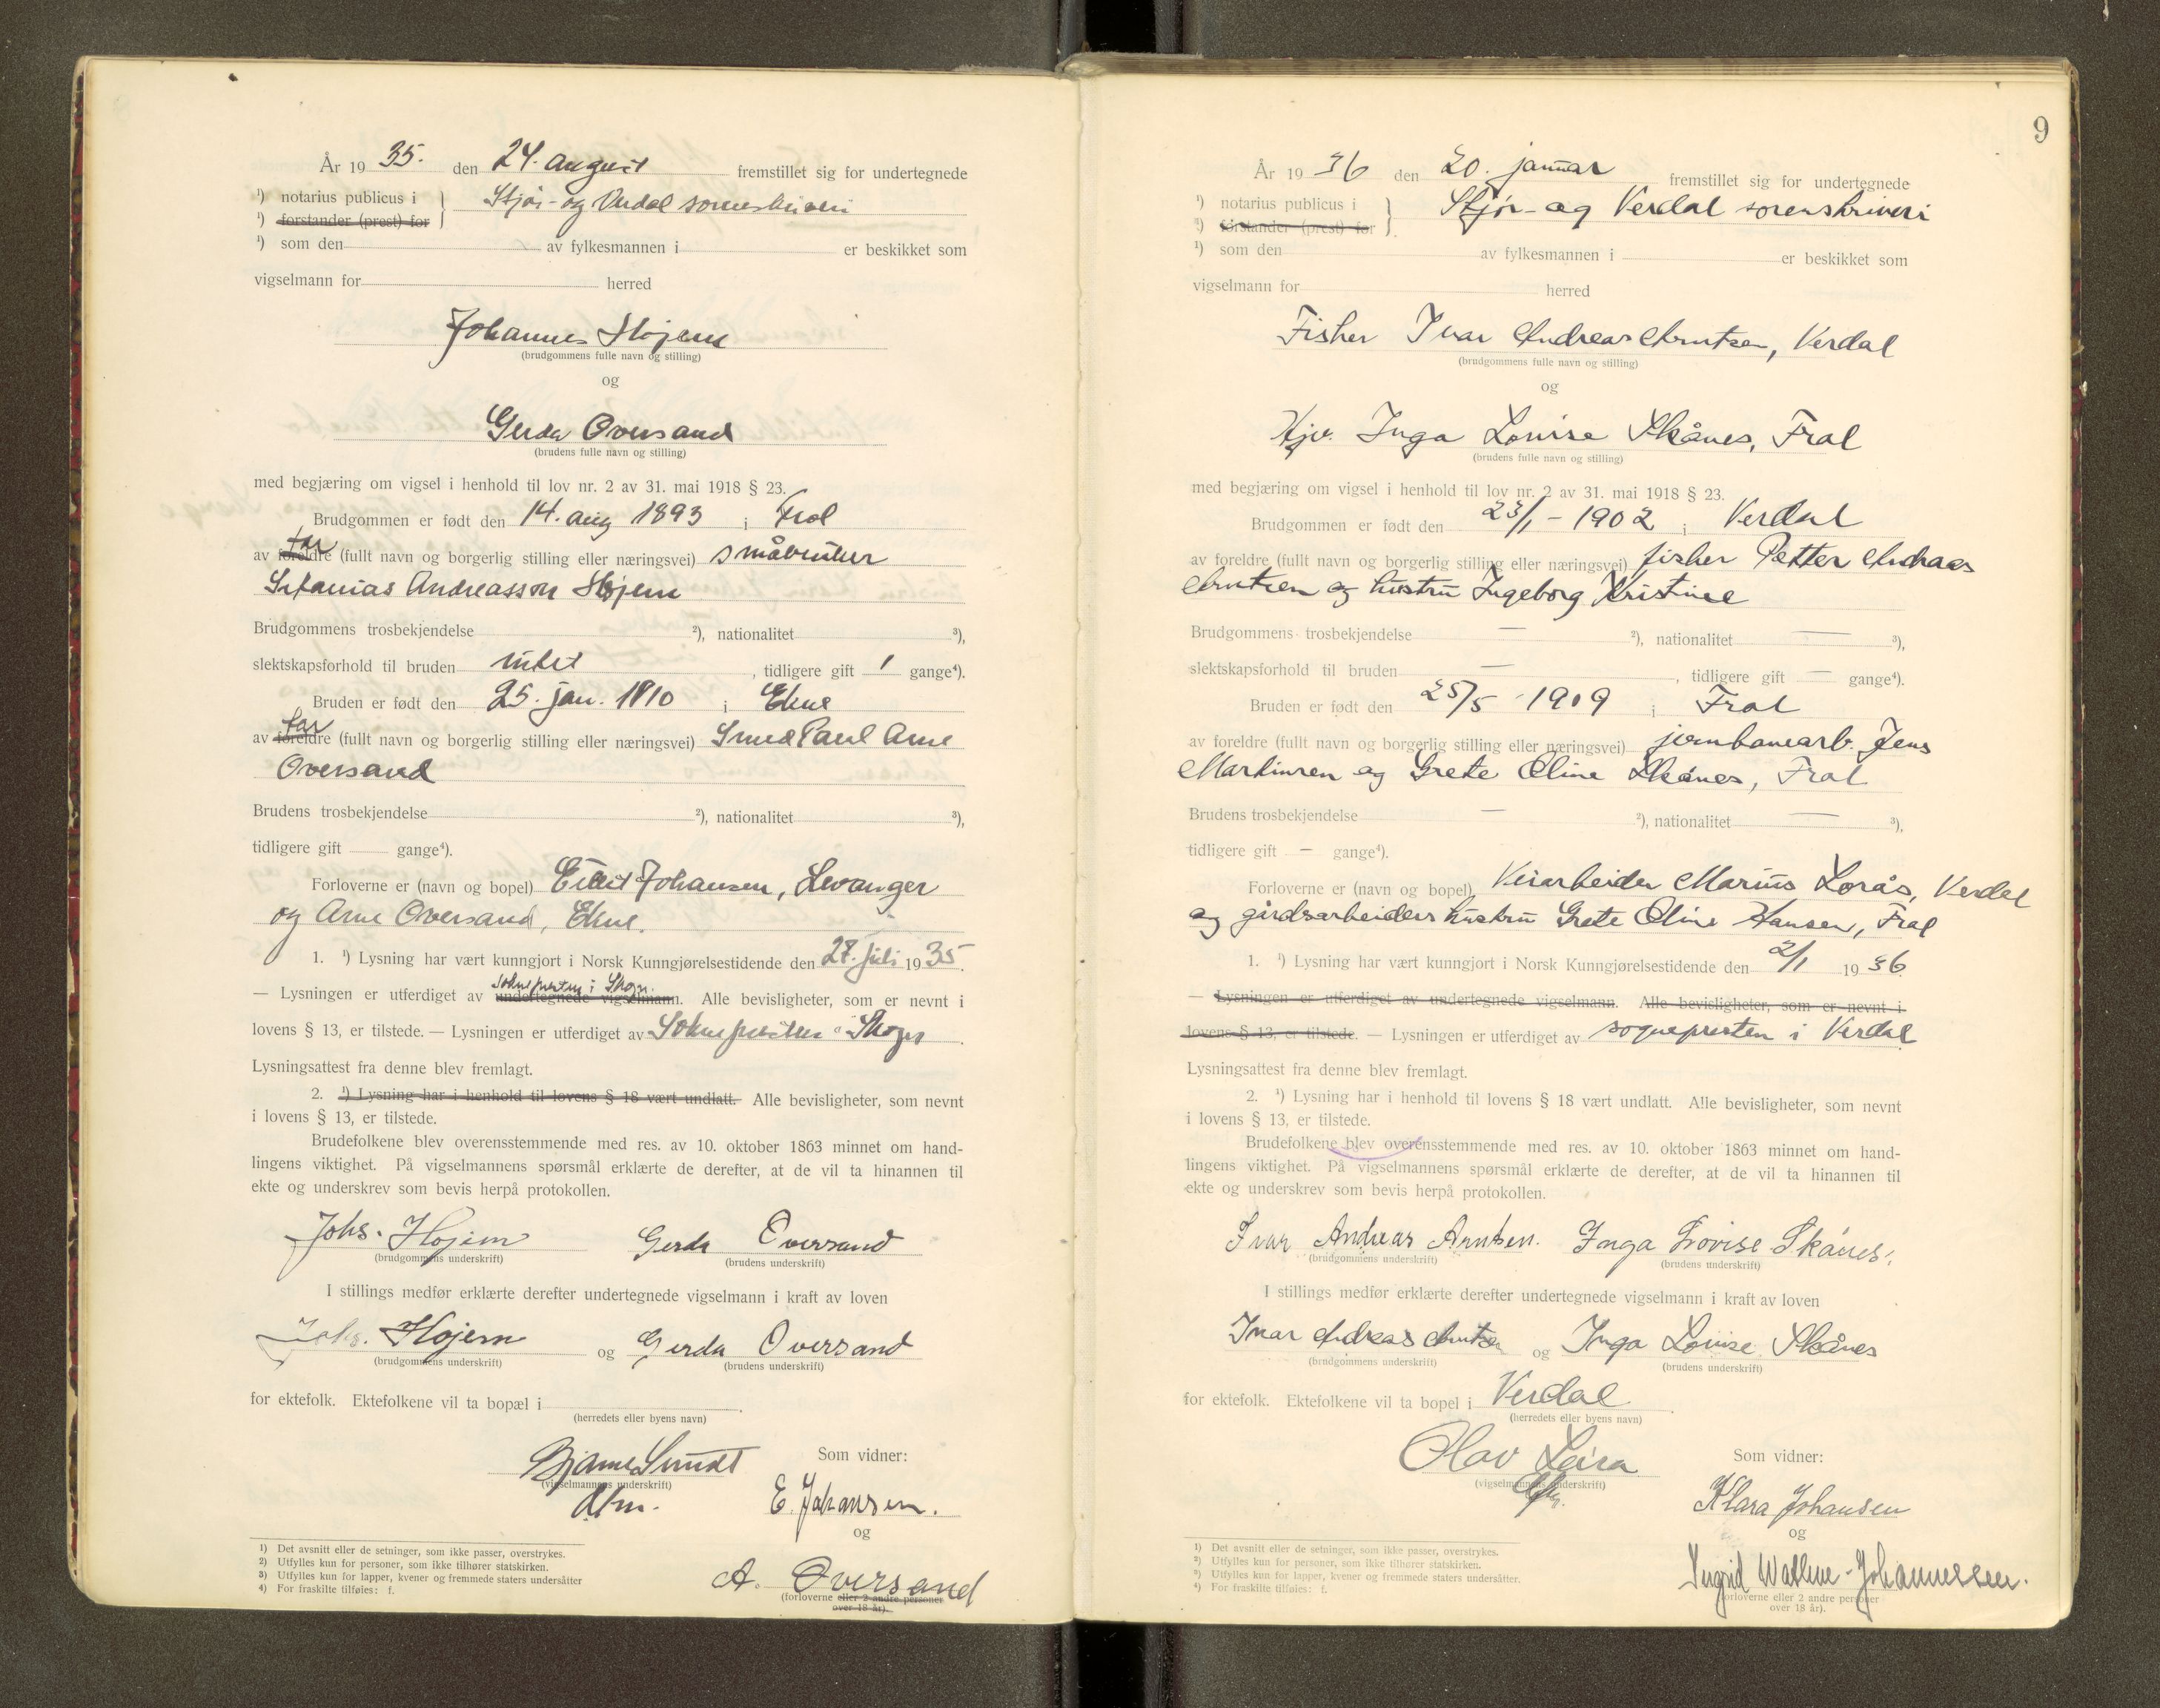 År 19 35. den 24. august fremstillet sig for undertegnede
1) notarius publicus i } Stjør- og Verdal sorenskriveri
1) forstander (prest) for
1) som den av fylkesmannen i er beskikket som
vigselmann for herred
Johannes Højem
(brudgommens fulle navn og stilling)
og
Gerda Oversand
(brudens fulle navn og stilling)
med begjæring om vigsel i henhold til lov nr. 2 av 31. mai 1918 § 23.
Brudgommen er født den 14. aug 1893 i Frol
far
av foreldre (fullt navn og borgerlig stilling eller næringsvei) småbruker
Sefanias Andreasson Højem
Brudgommens trosbekjendelse 2), nationalitet 3),
slektskapsforhold til bruden intet, tidligere gift 1 gange4).
Bruden er født den 25. jan. 1910 i Ekne
far
av foreldre (fullt navn og borgerlig stilling eller næringsvei) Smed Paul Arne
Oversand
Brudens trosbekjendelse 2), nationalitet 3),
tidligere gift gange4).
Forloverne er (navn og bopel) Johansen, Levanger
og Arne Oversand, Ekne.
1. 1) Lysning har vært kunngjort i Norsk Kunngjørelsestidende den 27. juli 1935.
Sokneprestens i Skogn.
— Lysningen er utferdiget av undertegnede vigselmann. Alle bevisligheter, som er nevnt i
lovens § 13, er tilstede. — Lysningen er utferdiget av Soknepresten i Skogn.
Lysningsattest fra denne blev fremlagt.
2. 1) Lysning har i henhold til lovens § 18 vært undlatt. Alle bevisligheter, som nevnt
i lovens § 13, er tilstede.
Brudefolkene blev overensstemmende med res. av 10. oktober 1863 minnet om hand-
lingens viktighet. På vigselmannens spørsmål erklærte de derefter, at de vil ta hinannen til
ekte og underskrev som bevis herpå protokollen.
Johs. Højem Gerda Oversand
(brudgommens underskrift) (brudens underskrift)
I stillings medfør erklærte derefter undertegnede vigselmann i kraft av loven
Johs. Højem og Gerda Oversand
(brudgommens underskrift) (brudens underskrift)
for ektefolk. Ektefolkene vil ta bopæl i .
(herredets eller byens navn)
Bjarne Sundt Som vidner:
(vigselmannens underskrift)
E. Johansen.
og
A. Oversand
(forloverne eller 2 andre personer
over 18 år).
1) Det avsnitt eller de setninger, som ikke passer, overstrykes.
2) Utfylles kun for personer, som ikke tilhører statskirken.
3) Utfylles kun for lapper, kvener og fremmede staters undersåtter
4) For fraskilte tilføies: f.
9
År 19 36 den 20. januar fremstillet sig for undertegnede
1) notarius publicus i } Stjør- og Verdal sorenskriveri
1) forstander (prest) for
1) som den av fylkesmannen i er beskikket som
vigselmann for herred
Fisker Ivar Andreas Arntsen, Verdal
(brudgommens fulle navn og stilling)
og
Hjv. Inga Lovise Skånes, Frol
(brudens fulle navn og stilling)
med begjæring om vigsel i henhold til lov nr. 2 av 31. mai 1918 § 23.
Brudgommen er født den 23/1 - 1902 i Verdal
av foreldre (fullt navn og borgerlig stilling eller næringsvei) fisker Petter Andreas
Arntsen og hustru Ingeborg Kristine
Brudgommens trosbekjendelse — 2), nationalitet — 3),
slektskapsforhold til bruden —, tidligere gift — gange4).
Bruden er født den 25/5 - 1909 i Frol
av foreldre (fullt navn og borgerlig stilling eller næringsvei) jernbanearb. Jens
Martinsen og Grete Oline Skånes, Frol
Brudens trosbekjendelse — 2), nationalitet — 3),
tidligere gift — gange4).
Forloverne er (navn og bopel) Veiarbeider Marius Lorås, Verdal
og gårdsarbeiders hustru Grete Oline Hansen, Frol
1. 1) Lysning har vært kunngjort i Norsk Kunngjørelsestidende den 2/1 1936.
— Lysningen er utferdiget av undertegnede vigselmann. Alle bevisligheter, som er nevnt i
lovens § 13, er tilstede. — Lysningen er utferdiget av sognepresten i Verdal
Lysningsattest fra denne blev fremlagt.
2. 1) Lysning har i henhold til lovens § 18 vært undlatt. Alle bevisligheter, som nevnt
i lovens § 13, er tilstede.
Brudefolkene blev overensstemmende med res. av 10. oktober 1863 minnet om hand-
lingens viktighet. På vigselmannens spørsmål erklærte de derefter, at de vil ta hinannen til
ekte og underskrev som bevis herpå protokollen.
Ivar Andreas Arntsen. Inga Lovise Skånes.
(brudgommens underskrift) (brudens underskrift)
I stillings medfør erklærte derefter undertegnede vigselmann i kraft av loven
Ivar Andreas Arntsen og Inga Lovise Skånes
(brudgommens underskrift) (brudens underskrift)
for ektefolk. Ektefolkene vil ta bopel i Verdal
(herredets eller byens navn)
Olav Leira Som vidner:
(vigselmannens underskrift)
Klara Johansen
og
Ingrid Wathne-Johannessen.
(forloverne eller 2 andre personer
over 18 år).
1) Det avsnitt eller de setninger, som ikke passer, overstrykes.
2) Utfylles kun for personer, som ikke tilhører statskirken.
3) Utfylles kun for lapper, kvener og fremmede staters undersåtter.
4) For fraskilte tilføies: f.